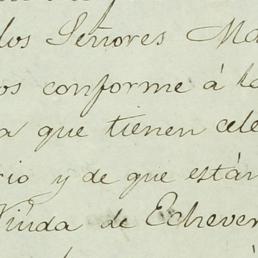 los Señores Ma
os conforme á la
a que tienen cele
rio y de que están
Viuda de Echever